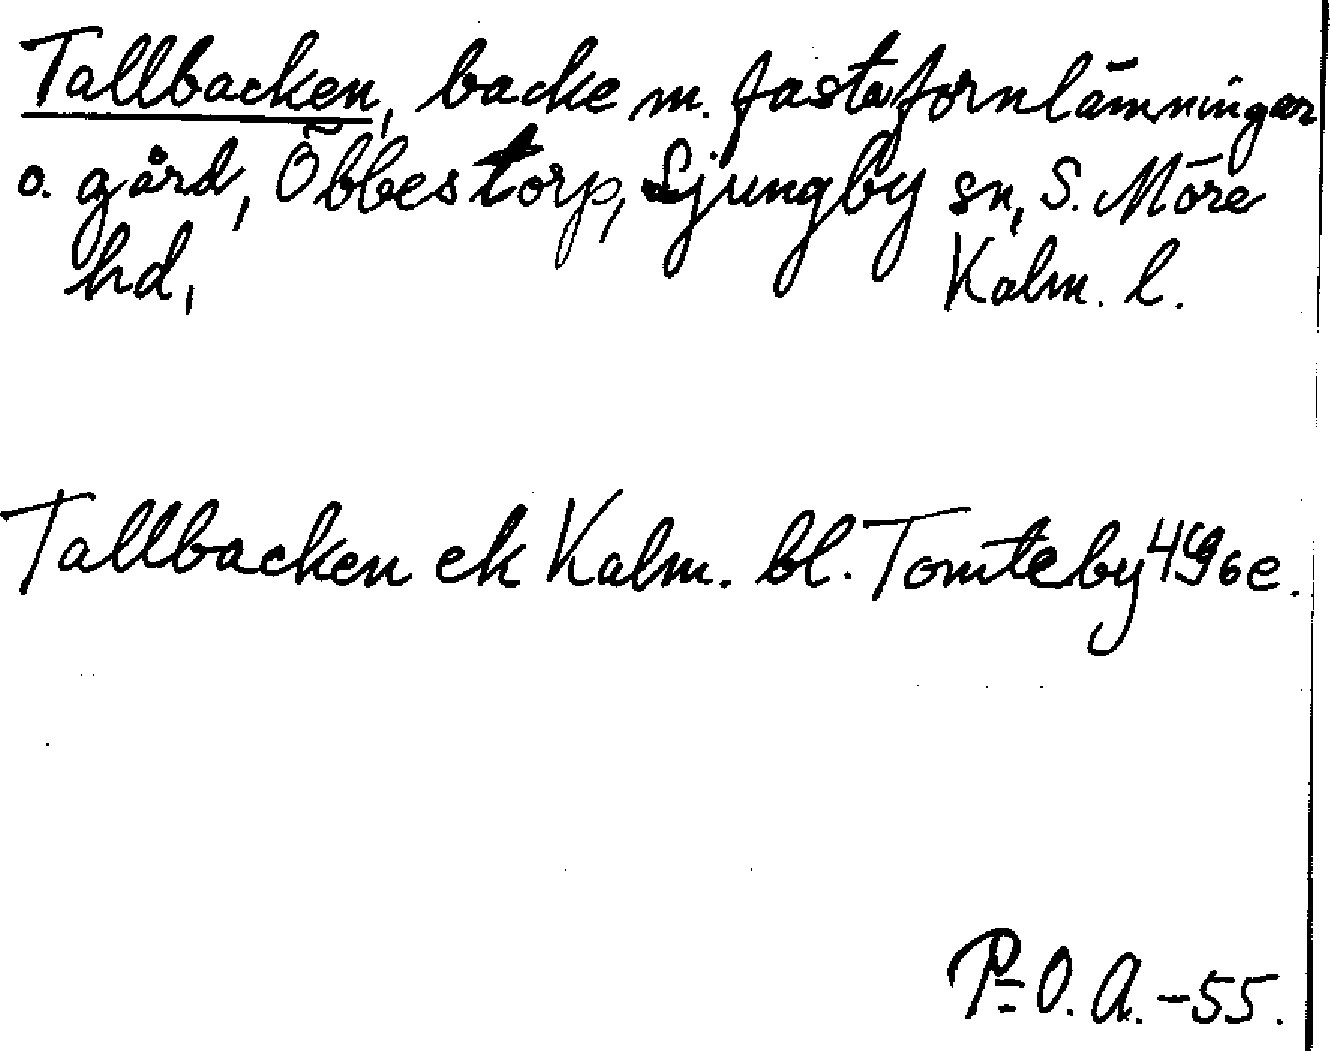 Tallbacken, backe m. fasta fornlämningar
o. gård, Öbbestorp, Ljungby sn, S. Möre
hd, Kalm. l.
Tallbacken ek Kalm. bl. Tomteby 4G6e.
P=O. A. -55.